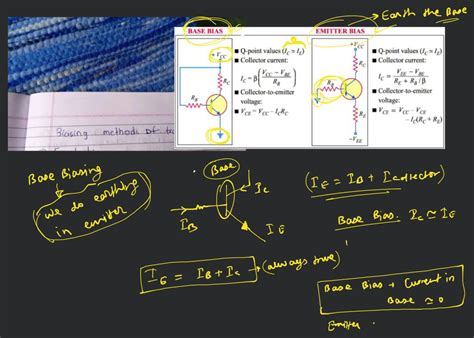 Earth the Base
BASE BIAS
+VCC
RC
RB
■ Q-point values (IC ≈ IE)
■ Collector current:
IC = β((VCC − VBE)/RB)
■ Collector-to-emitter
voltage:
VCE = VCC − ICRC
EMITTER BIAS
+VCC
RC
RB
RE
−VEE
■ Q-point values (IC ≈ IE)
■ Collector current:
IC ≈ (VEE − VBE)/(RE + RB/β)
■ Collector-to-emitter
voltage:
■ VCE = VCC − VEE
− IC(RC + RE)
Biasing methods of
Base Biasing
we do earthing
in emitter
Base
IC
IB
IE
IE = IB + IC → (always true)
(IE = IB + Icollector)
Base Bias. IC ≃ IE
Base Bias → Current in
Base ≃ 0
Emitter